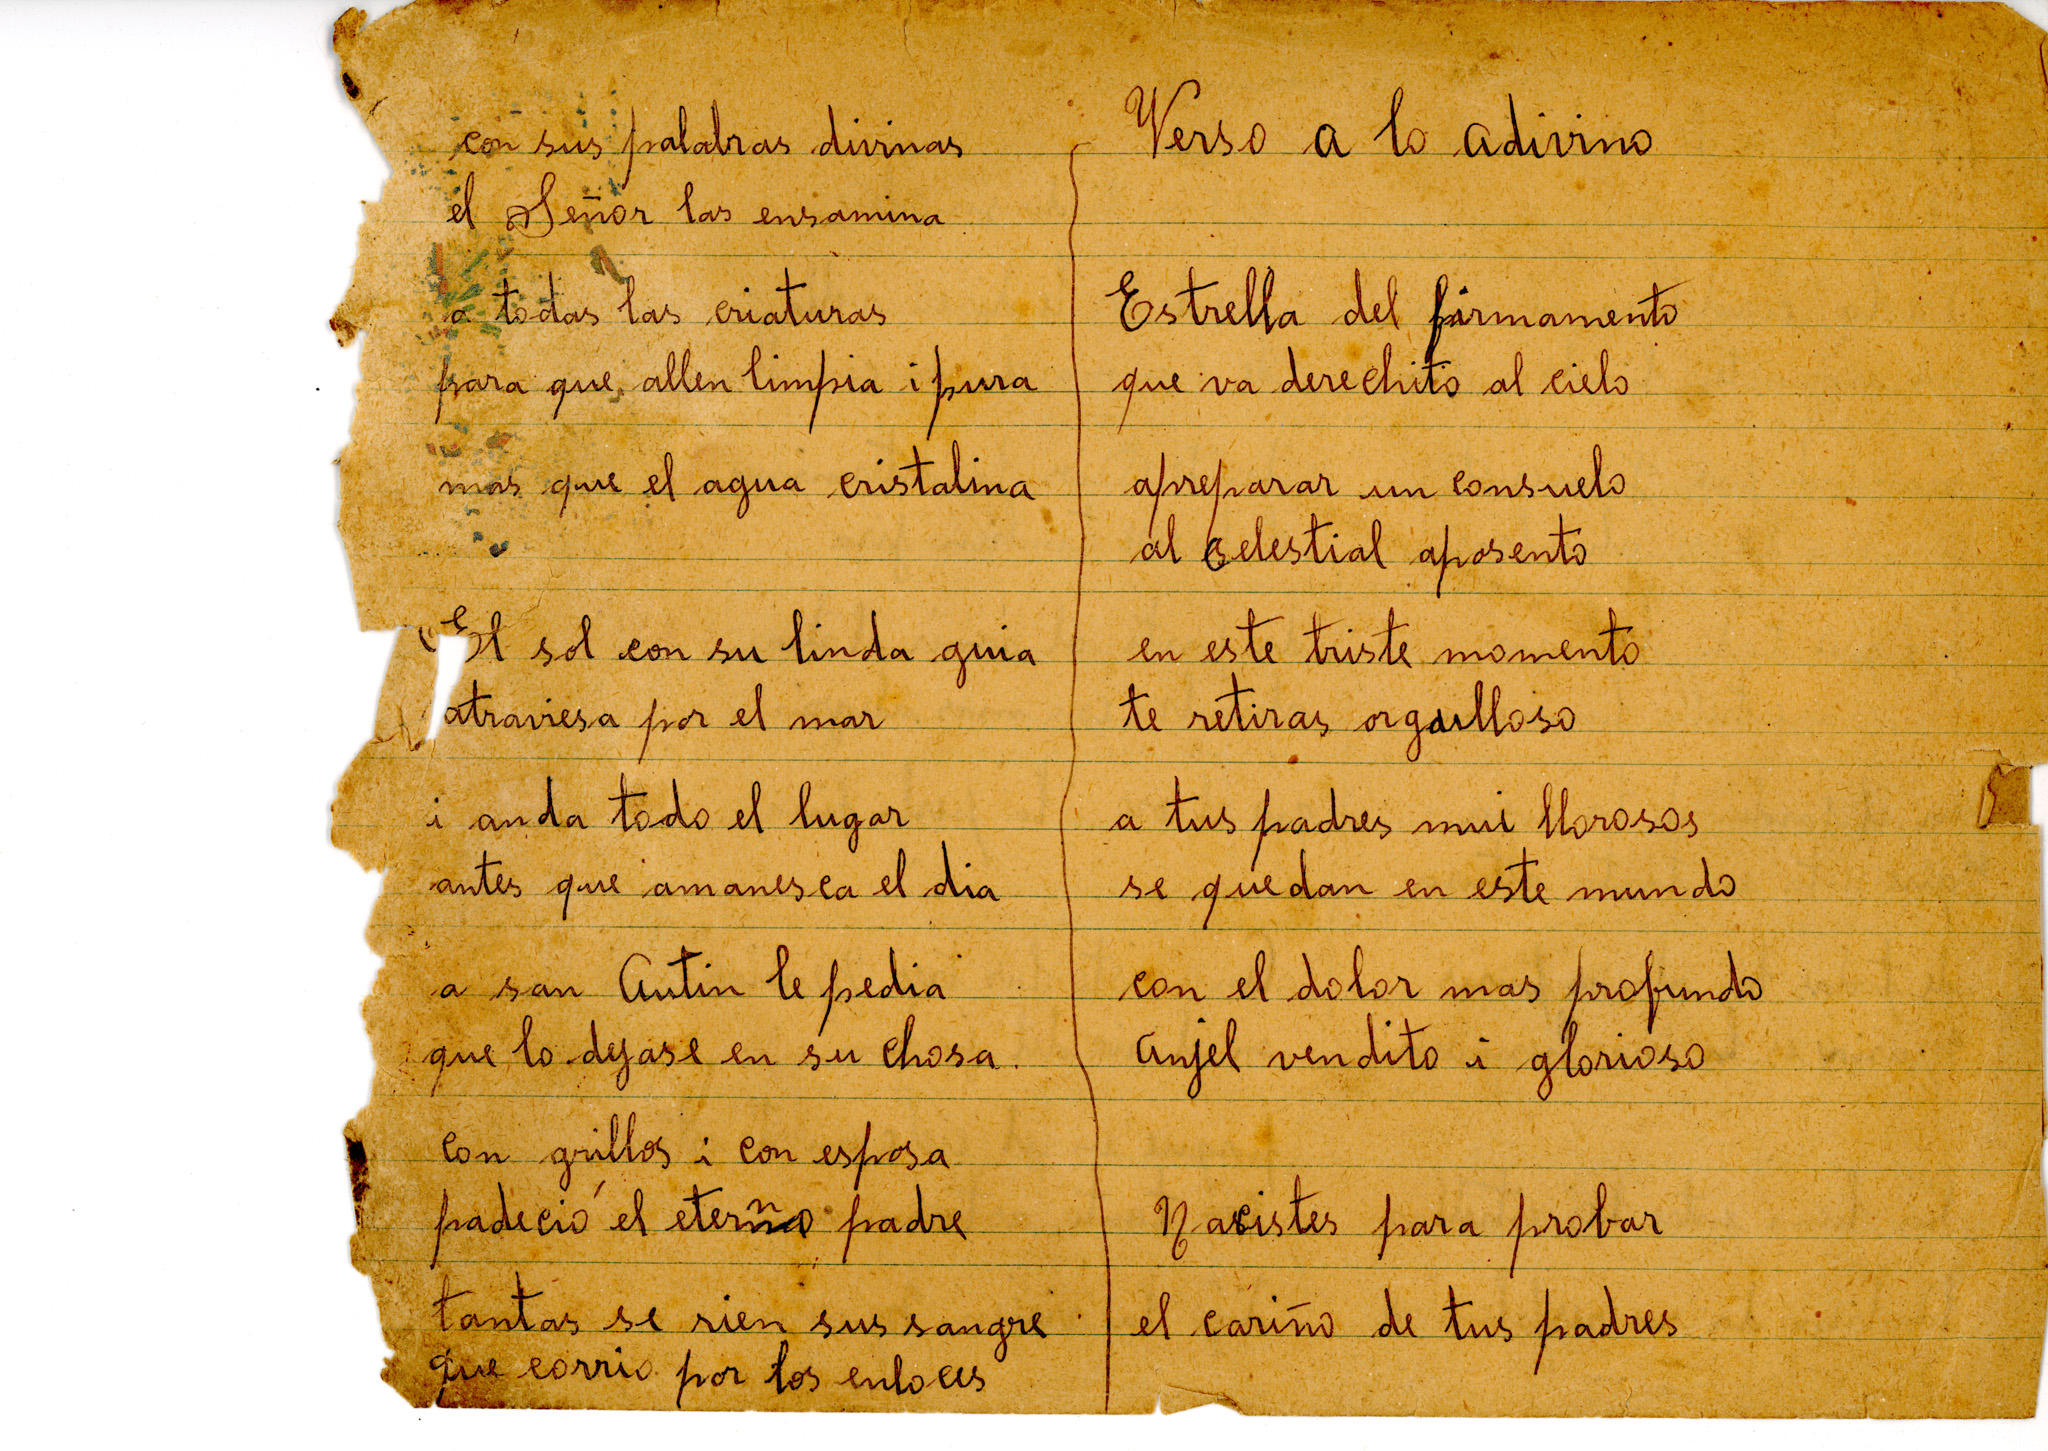 con sus palabras divinas
el Señor las ensamina
a todas las criaturas
para que allen limpia i pura
mas que el agua cristalina
El sol con su linda guia
atraviesa por el mar
i anda todo el lugar
antes que amanesca el dia
a san Autin le pedia
que lo dejase en su chosa.
con grillos i con esposa
padeció el eterno padre
tantas se rien sus sangre
que corrio por los enloces
Verso a lo adivino
Estrella del firmamento
que va derechito al cielo
apreparar un consuelo
al celestial aposento
en este triste momento
te retiras orgulloso
a tus padres mui llorosos
se quedan en este mundo
con el dolor mas profundo
anjel vendito i glorioso
Nacistes para probar
el cariño de tus padres